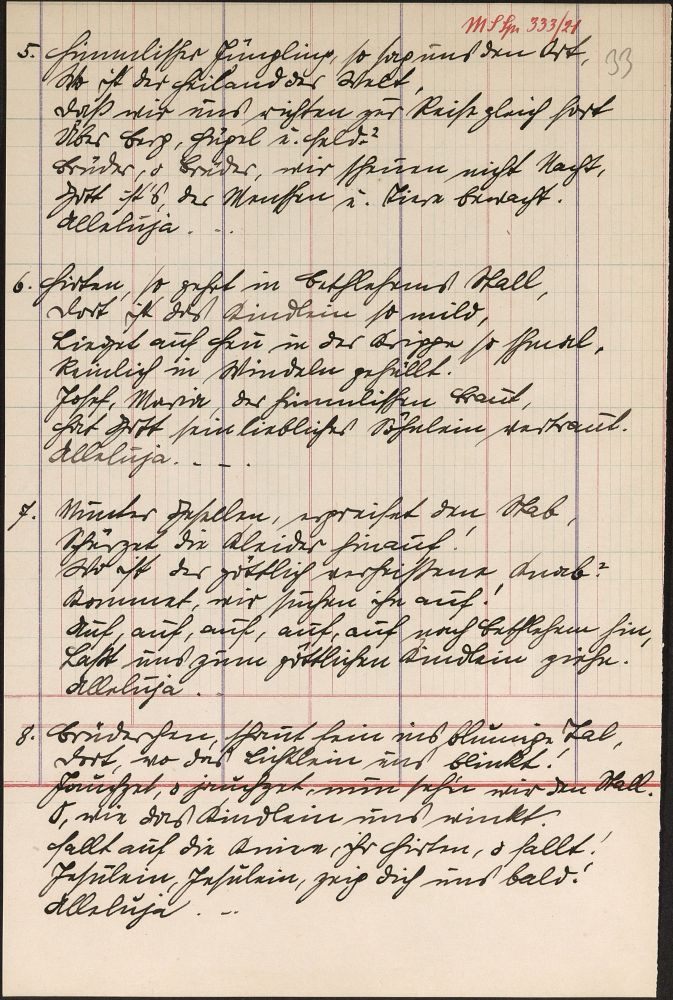 MS Sp. 333/21
33
5. Himmlischer Jüngling, so sag uns den Ort,
Wo ist der Heiland der Welt,
Daß wir uns richten zur Reise gleich fort
Über Berg, Hügel u. Feld?
Brüder, o Brüder, wir scheuen nicht Nacht,
Gott ist's, der Menschen u. Tiere bewacht.
Alleluja. . .
6. Hirten, so gehet in Bethlehems Stall,
Dort ist das Kindlein so mild,
Lieget auf Heu in der Krippe so schmal,
Reinlich in Windeln gehüllt.
Josef, Maria, der himmlischen Braut,
Hat Gott sein liebliches Söhnlein vertraut.
Alleluja. - - .
7. Munter Gesellen, ergreifet den Stab,
Schürzet die Kleider hinauf!
Wo ist der göttlich verheißene Knab?
Kommet, wir suchen ihn auf!
Auf, auf, auf, auf, auf nach Bethlehem hin,
Laßt uns zum göttlichen Kindlein ziehn.
Alleluja . .
8. Brüderchen, schaut fein ins blumige Tal,
Dort, wo das Lichtlein uns blinkt!
Jauchzet, o jauchzet, nun sehn wir den Stall.
O, wie das Kindlein uns winkt.
Fallt auf die Kniee, ihr Hirten, o fallt!
Jesulein, Jesulein, zeig dich uns bald!
Alleluja . --